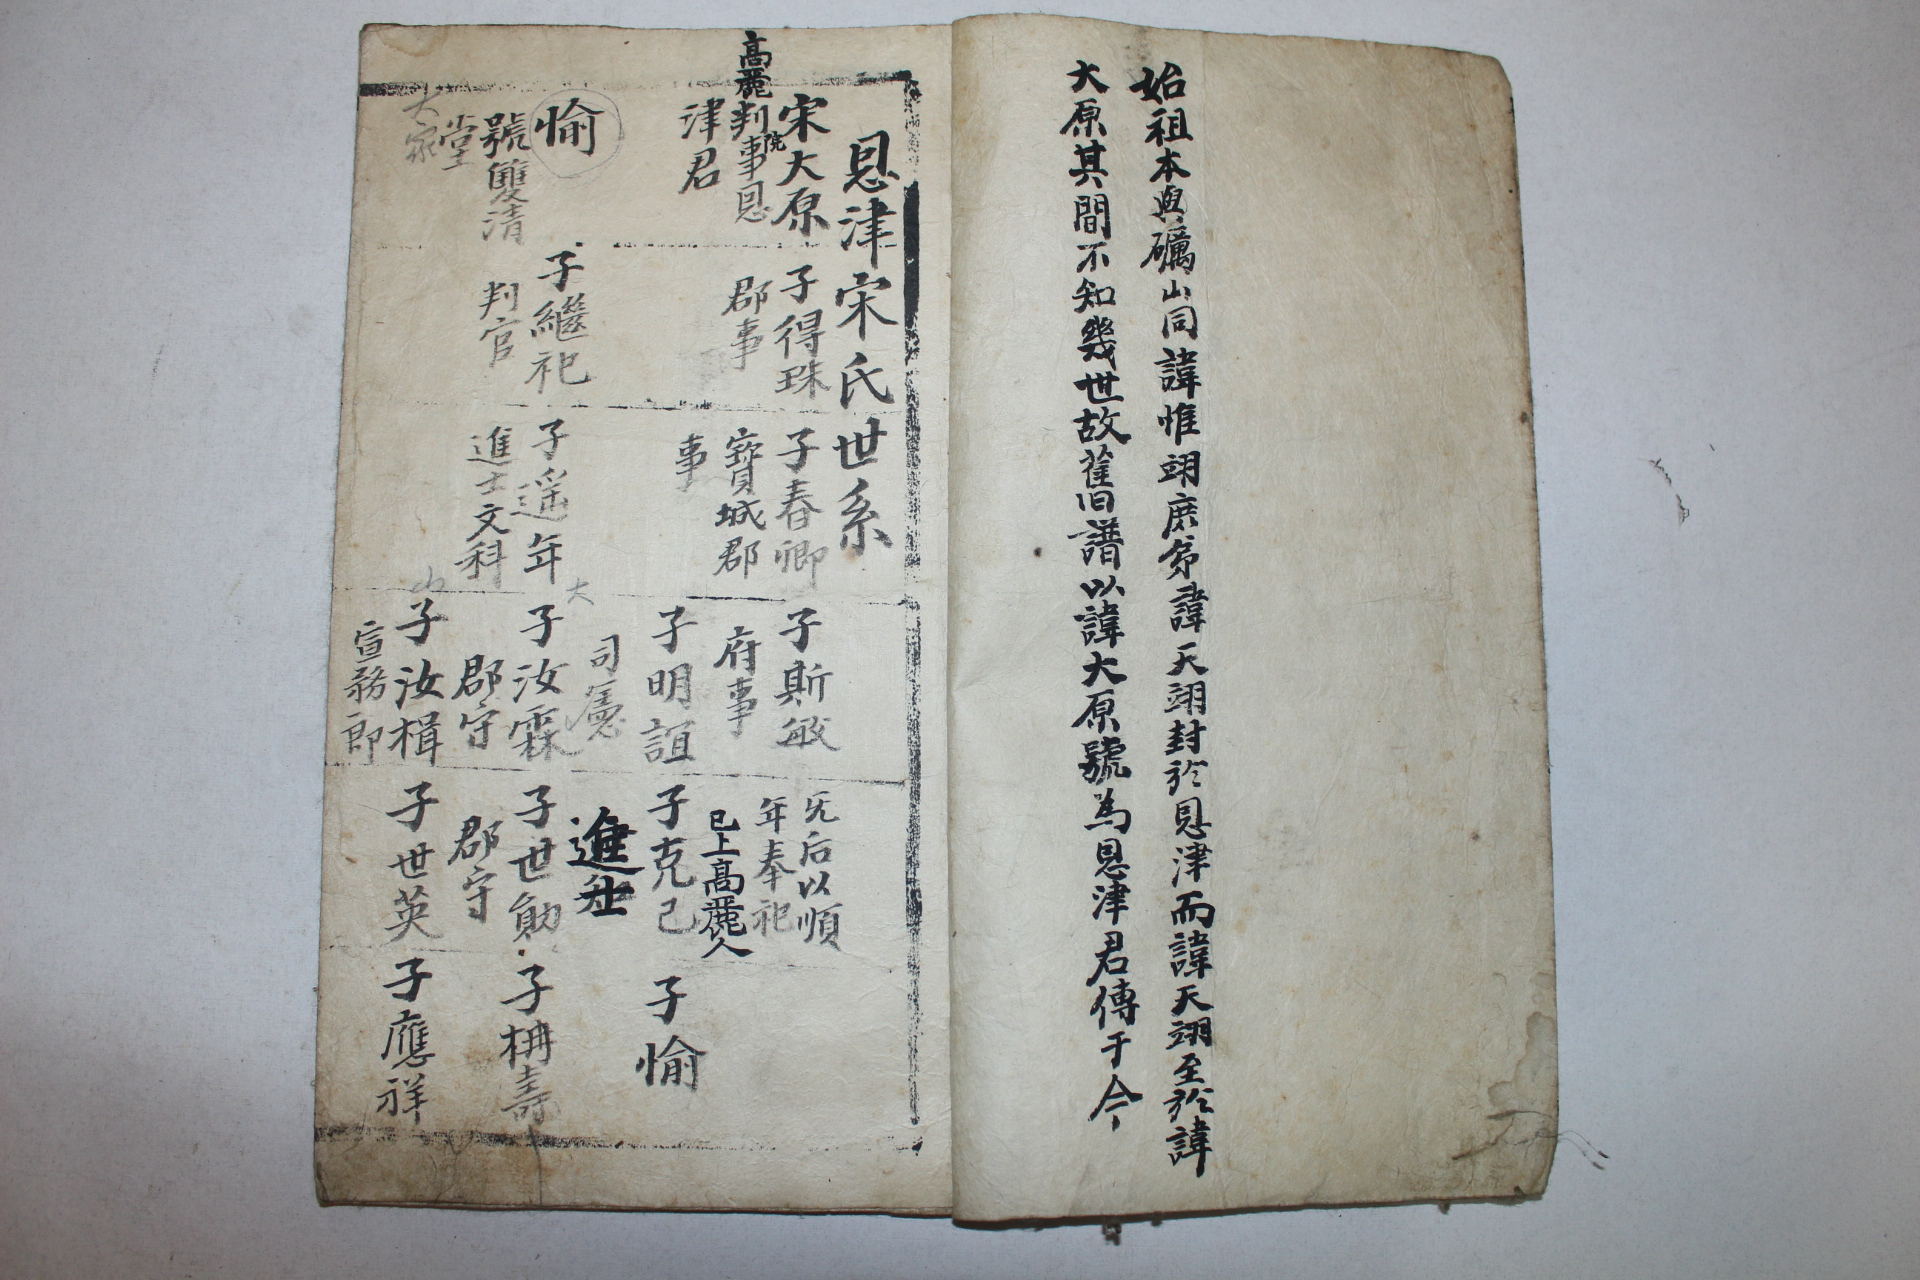 始祖本與礪山同諱惟翊庶弟諱天翊封於恩津而諱天翊至於諱
大原其間不知幾世故舊譜以諱大原號為恩津君傳于今
恩津宋氏世系
宋大原
高麗判院事恩
津君
子得珠
郡事
子春卿
寶城郡
事
子斯敏
府事
无后以順
年奉祀
已上高麗人
子明誼
司憲
子克己
進士
子愉
愉
號雙清
堂
子繼祀
判官
子遥年
進士文科
大
子汝霖
郡守
子世勛
郡守
子枏壽
子汝楫
宣務郎
子世英
子應祥